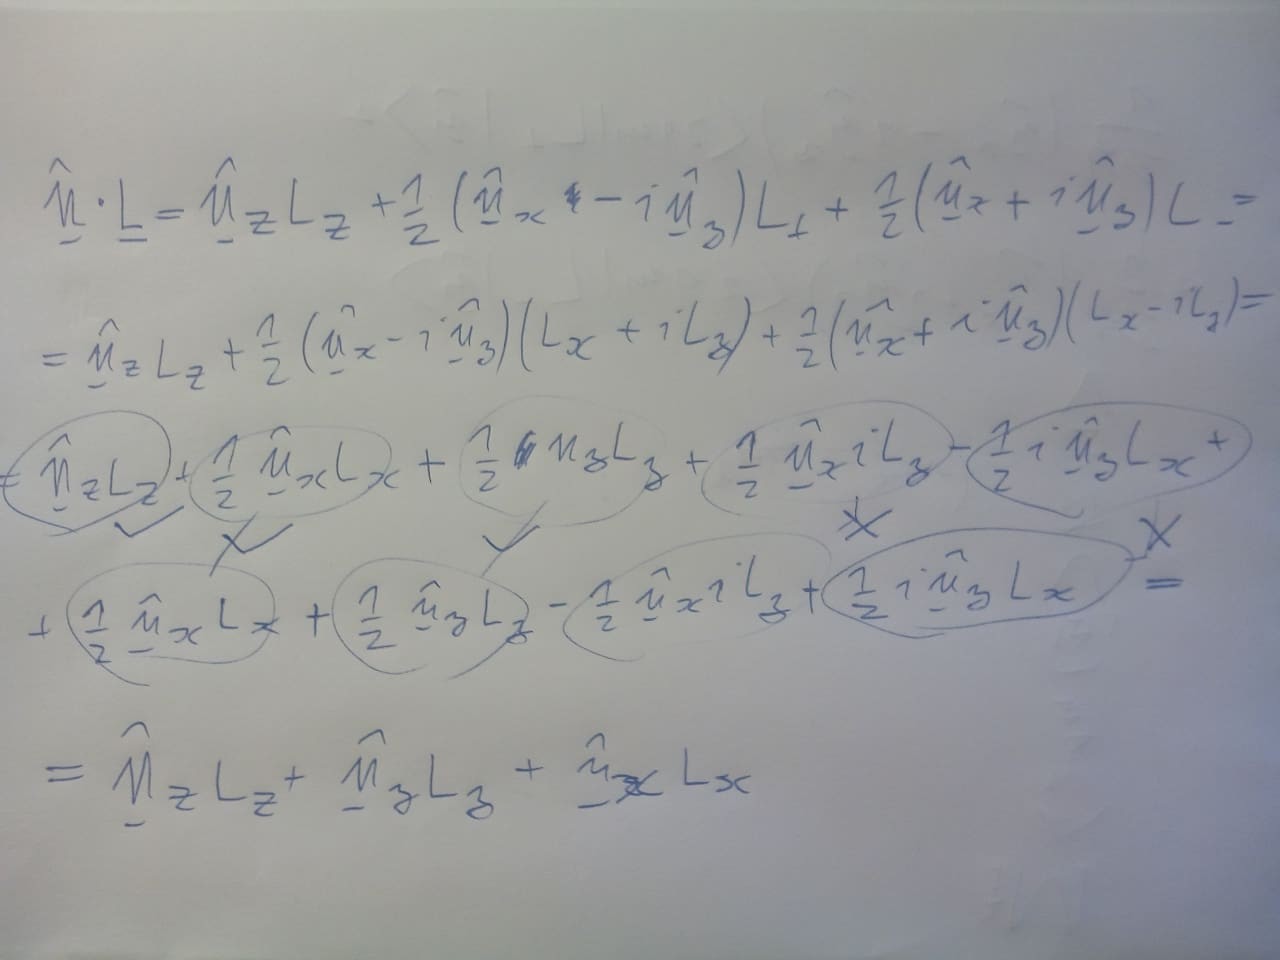 n̲̂ · L̲ = n̲̂_z L_z + 1/2 (n̲̂_x - i n̲̂_y) L_+ + 1/2 (n̲̂_x + i n̲̂_y) L_- =
= n̲̂_z L_z + 1/2 (n̲̂_x - i n̲̂_y)(L_x + i L_y) + 1/2 (n̲̂_x + i n̲̂_y)(L_x - i L_y) =
= n̲̂_z L_z + 1/2 n̲̂_x L_x + 1/2 n_y L_y + 1/2 n̲̂_x i L_y - 1/2 i n̲̂_y L_x +
+ 1/2 n̲̂_x L_x + 1/2 n̲̂_y L_y - 1/2 n̲̂_x i L_y + 1/2 i n̲̂_y L_x =
= n̲̂_z L_z + n̲̂_y L_y + n̲̂_x L_x